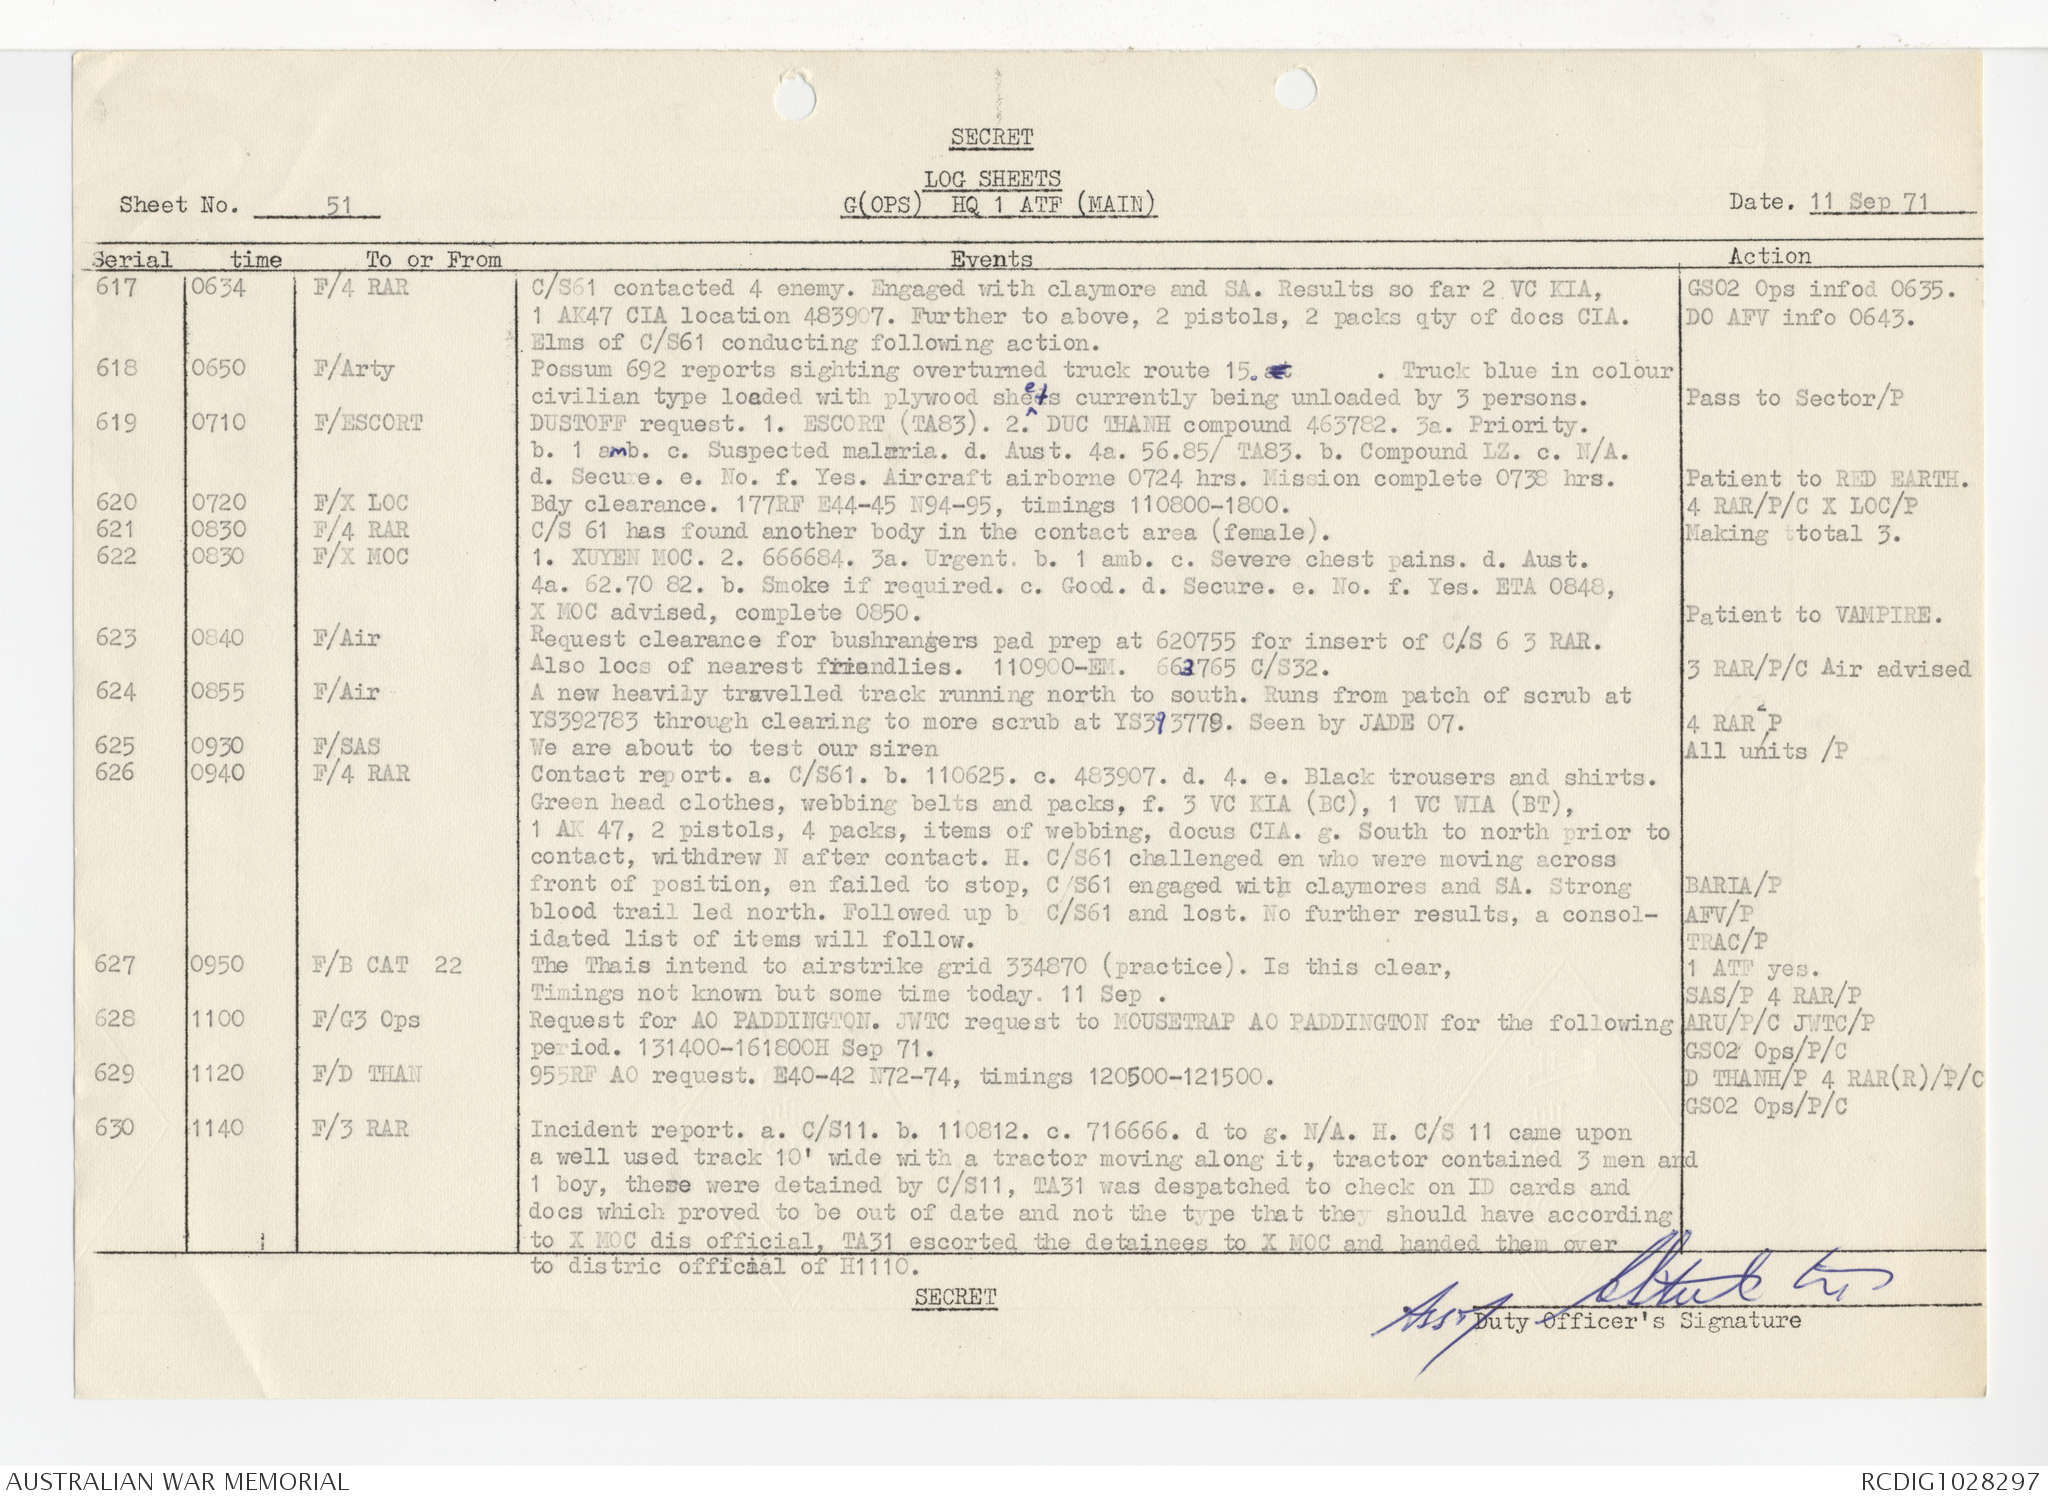 SECRET
LOG SHEETS
Sheet No. 51 G(OPS) HQ 1 ATF (MAIN) Date. 11 Sep 71
Serial time To or From Events Action
617 0634 F/4 RAR C/S61 contacted 4 enemy. Engaged with claymore and SA. Results so far 2 VC KIA, GSO2 Ops infod 0635.
1 AK47 CIA location 483907. Further to above, 2 pistols, 2 packs qty of docs CIA. DO AFV info 0643.
Elms of C/S61 conducting following action.
618 0650 F/Arty Possum 692 reports sighting overturned truck route 15. . Truck blue in colour
civilian type loaded with plywood sheets currently being unloaded by 3 persons. Pass to Sector/P
619 0710 F/ESCORT DUSTOFF request. 1. ESCORT (TA83). 2. DUC THANH compound 463782. 3a. Priority.
b. 1 amb. c. Suspected malaria. d. Aust. 4a. 56.85/ TA83. b. Compound LZ. c. N/A.
d. Secure. e. No. f. Yes. Aircraft airborne 0724 hrs. Mission complete 0738 hrs. Patient to RED EARTH.
620 0720 F/X LOC Bdy clearance. 177RF E44-45 N94-95, timings 110800-1800. 4 RAR/P/C X LOC/P
621 0830 F/4 RAR C/S 61 has found another body in the contact area (female). Making ttotal 3.
622 0830 F/X MOC 1. XUYEN MOC. 2. 666684. 3a. Urgent. b. 1 amb. c. Severe chest pains. d. Aust.
4a. 62.70 82. b. Smoke if required. c. Good. d. Secure. e. No. f. Yes. ETA 0848,
X MOC advised, complete 0850. Patient to VAMPIRE.
623 0840 F/Air Request clearance for bushrangers pad prep at 620755 for insert of C/S 6 3 RAR.
Also locs of nearest friendlies. 110900-EM. 663765 C/S32. 3 RAR/P/C Air advised
624 0855 F/Air A new heavily travelled track running north to south. Runs from patch of scrub at
YS392783 through clearing to more scrub at YS393779. Seen by JADE 07. 4 RAR P
625 0930 F/SAS We are about to test our siren All units /P
626 0940 F/4 RAR Contact report. a. C/S61. b. 110625. c. 483907. d. 4. e. Black trousers and shirts.
Green head clothes, webbing belts and packs, f. 3 VC KIA (BC), 1 VC WIA (BT),
1 AK 47, 2 pistols, 4 packs, items of webbing, docus CIA. g. South to north prior to
contact, withdrew N after contact. H. C/S61 challenged en who were moving across
front of position, en failed to stop, C/S61 engaged with claymores and SA. Strong BARIA/P
blood trail led north. Followed up b C/S61 and lost. No further results, a consol- AFV/P
idated list of items will follow. TRAC/P
627 0950 F/B CAT 22 The Thais intend to airstrike grid 334870 (practice). Is this clear, 1 ATF yes.
Timings not known but some time today. 11 Sep . SAS/P 4 RAR/P
628 1100 F/G3 Ops Request for AO PADDINGTON. JWTC request to MOUSETRAP AO PADDINGTON for the following ARU/P/C JWTC/P
period. 131400-161800H Sep 71. GSO2 Ops/P/C
629 1120 F/D THAN 955RF AO request. E40-42 N72-74, timings 120500-121500. D THANH/P 4 RAR(R)/P/C
GSO2 Ops/P/C
630 1140 F/3 RAR Incident report. a. C/S11. b. 110812. c. 716666. d to g. N/A. H. C/S 11 came upon
a well used track 10' wide with a tractor moving along it, tractor contained 3 men and
1 boy, these were detained by C/S11, TA31 was despatched to check on ID cards and
docs which proved to be out of date and not the type that they should have according
to X MOC dis official, TA31 escorted the detainees to X MOC and handed them over
to distric official of H1110.
SECRET
Duty Officer's Signature
AUSTRALIAN WAR MEMORIAL RCDIG1028297